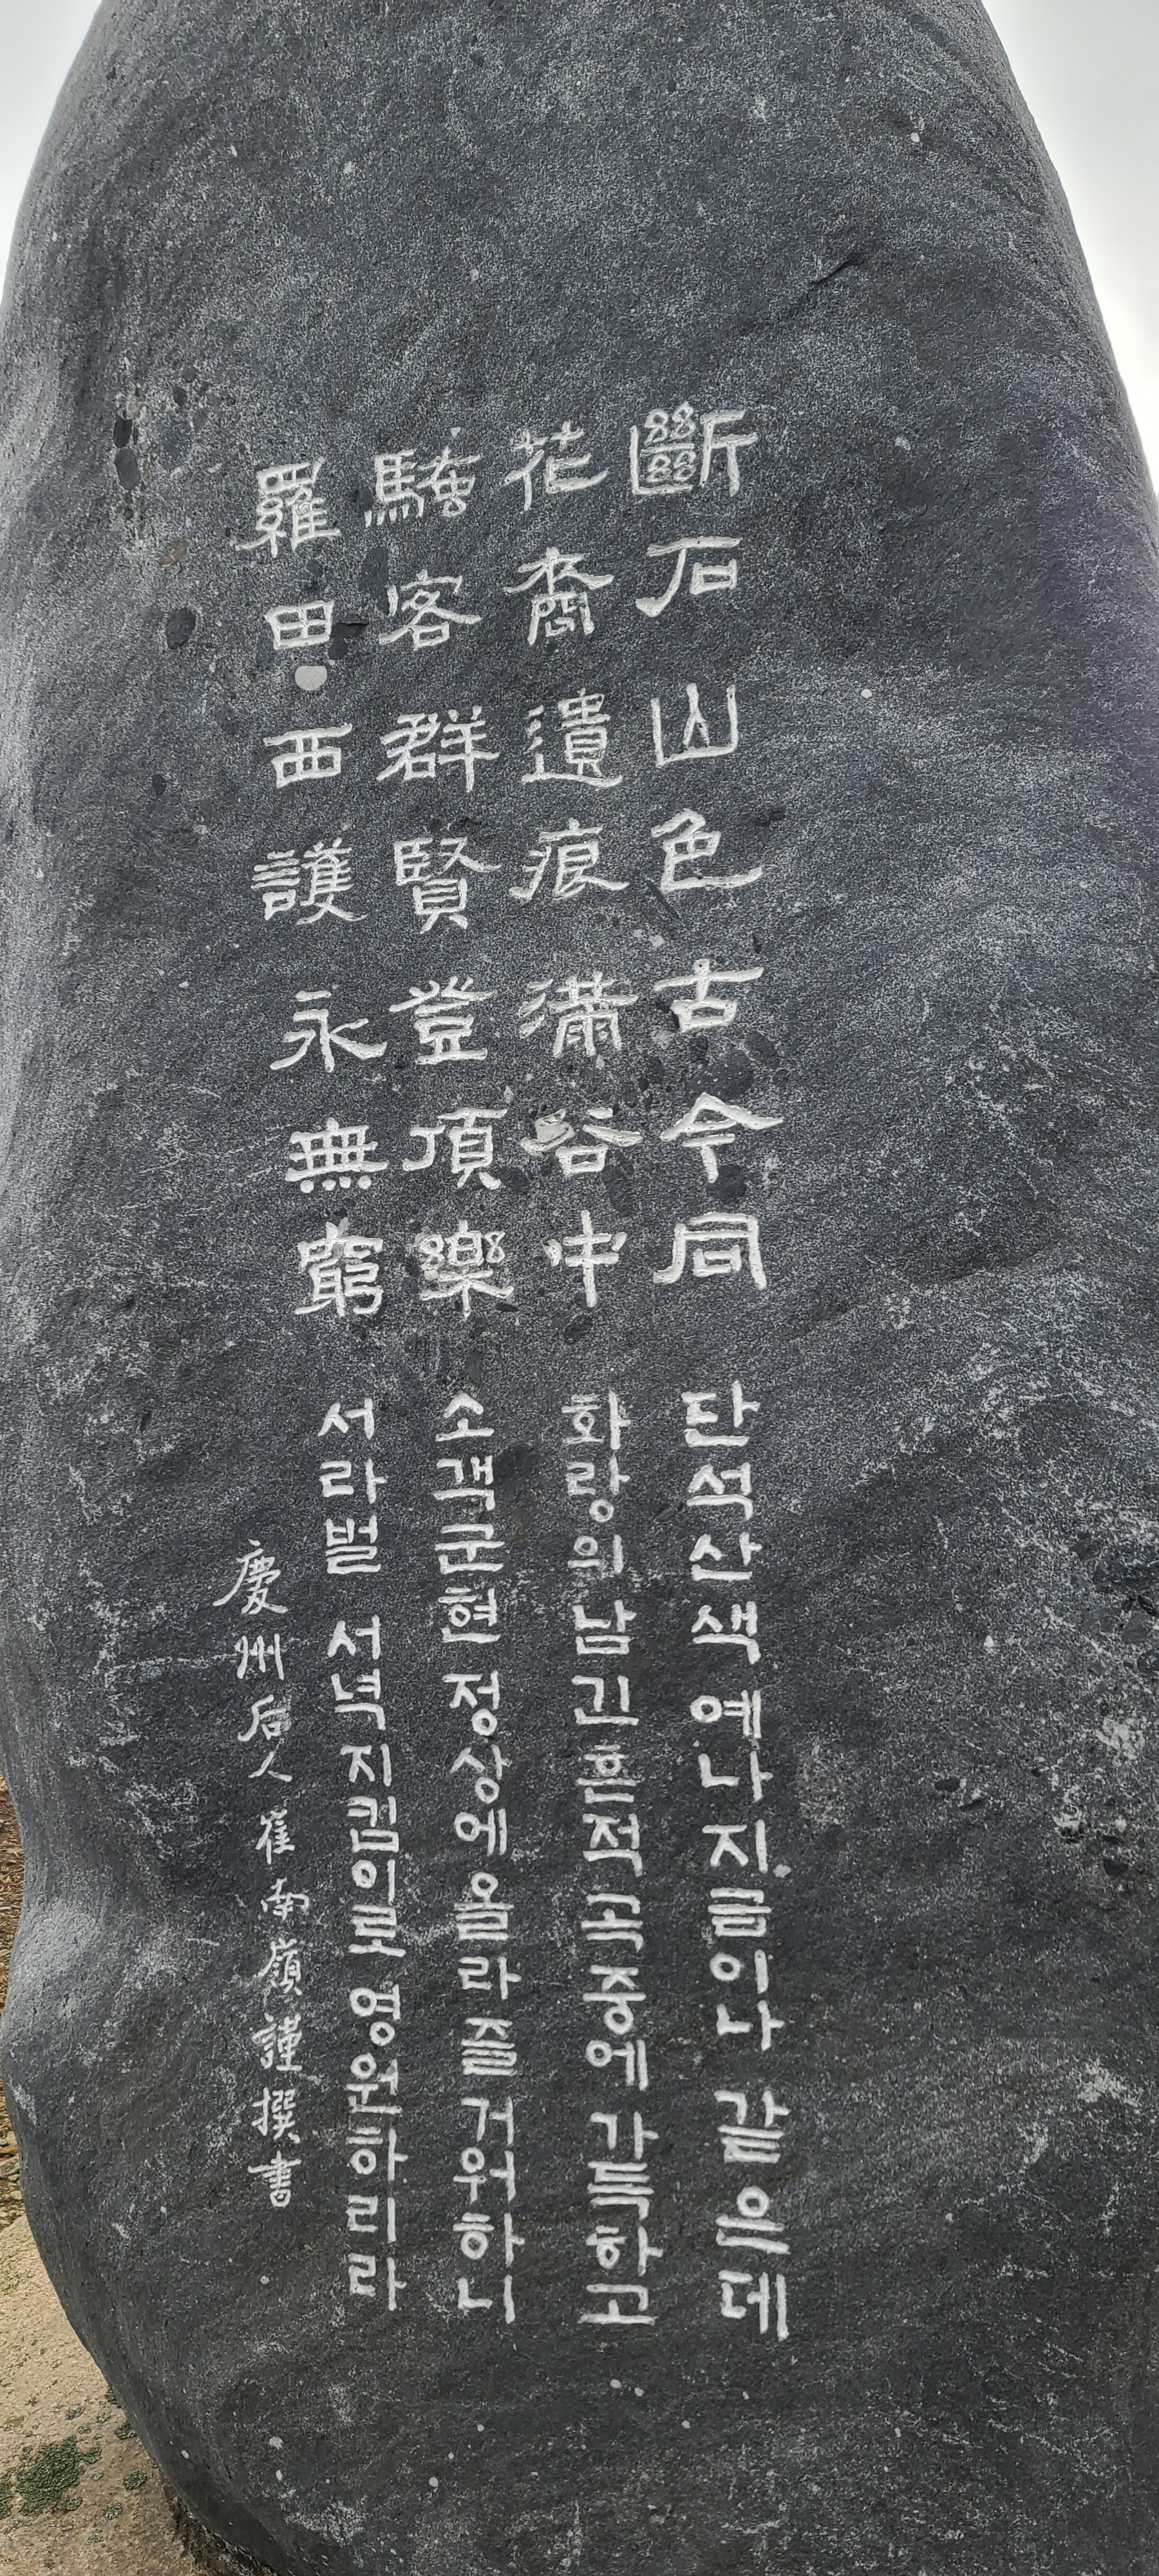 斷石山色古今同 단석산색 예나지금이나 같은데
花裔遺痕滿谷中 화랑의남긴흔적곡중에 가득하고
騷客群賢登頂樂 소객군현 정상에올라즐거워하니
羅田西護永無窮 서라벌 서녁지킴이로영원하리라
慶州后人 崔南嶺謹撰書